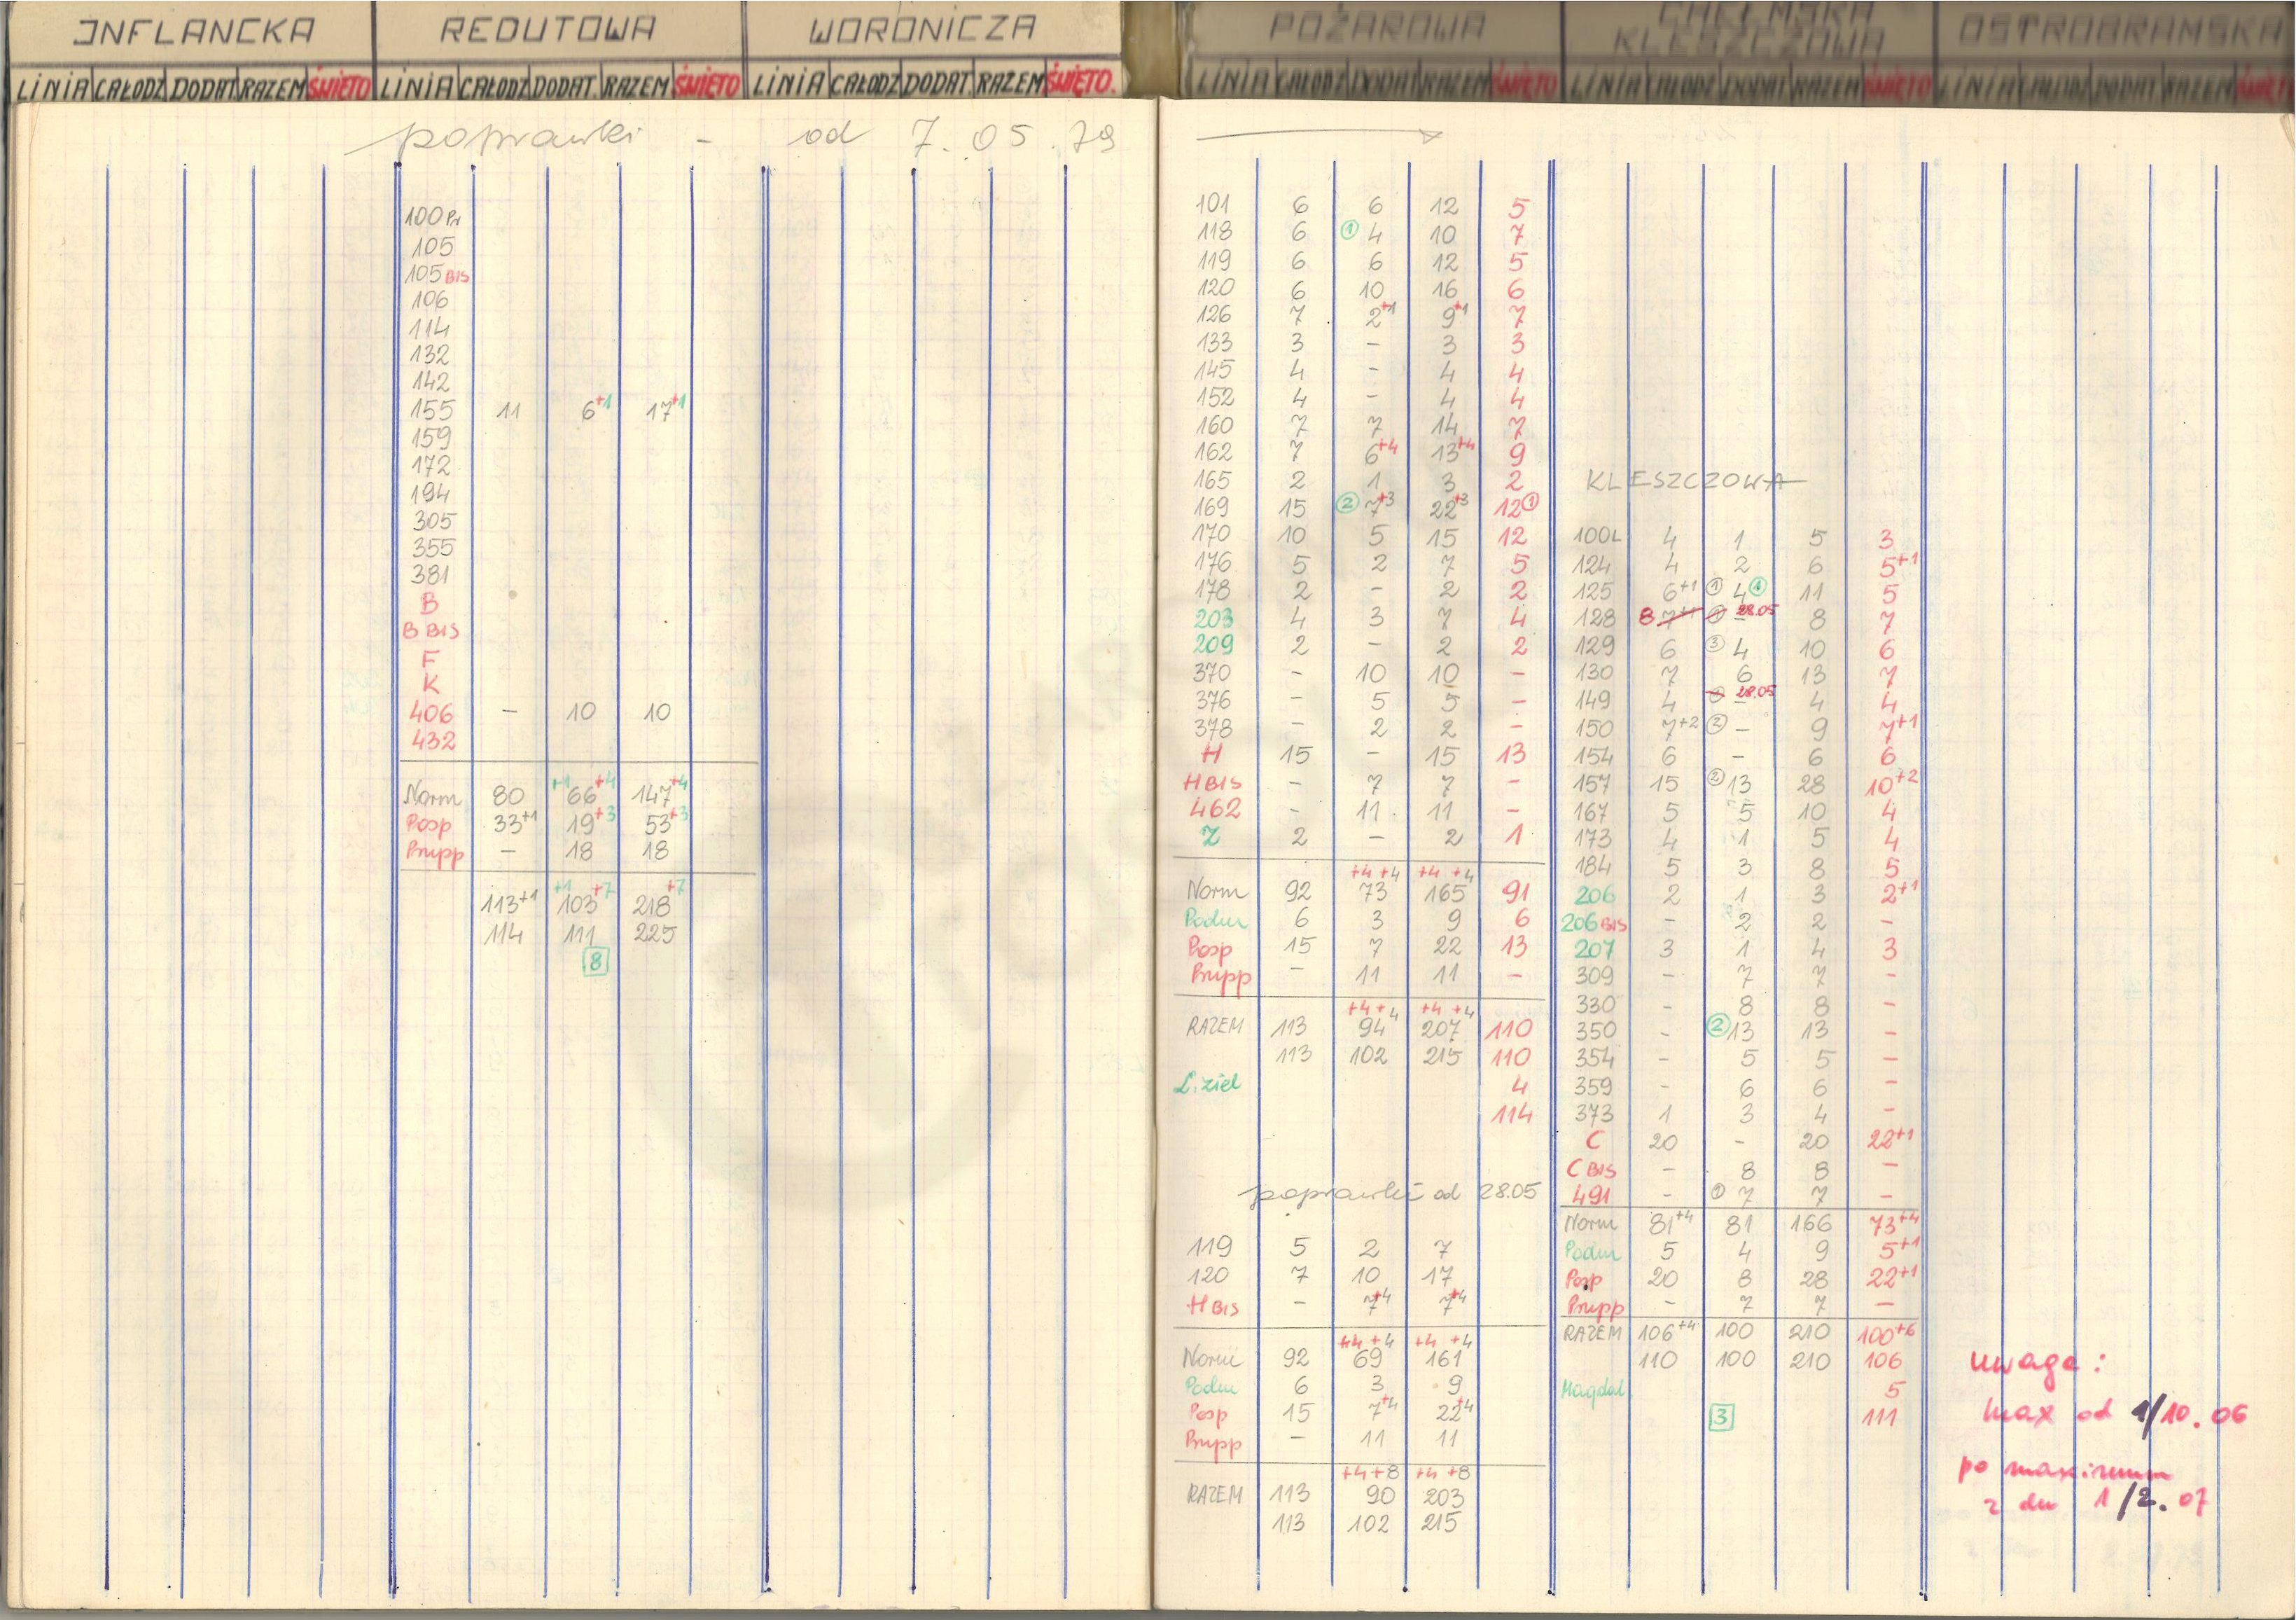 INFLANCKA
LINIA CAŁODZ DODAT RAZEM ŚWIĘTO
REDUTOWA
LINIA CAŁODZ DODAT. RAZEM ŚWIĘTO
WORONICZA
LINIA CAŁODZ DODAT. RAZEM ŚWIĘTO.
POŻAROWA
LINIA CAŁODZ DODAT RAZEM ŚWIĘTO
CHEŁMSKA
KLESZCZOWA
LINIA CAŁODZ DODAT RAZEM ŚWIĘTO
OSTROBRAMSKA
LINIA CAŁODZ DODAT RAZEM ŚWIĘT
poprawki - od 7.05.79
100 Pr
105
105 BIS
106
114
132
142
155 11 6+1 17+1
159
172
194
305
355
381
B
B BIS
F
K
406 - 10 10
432
+1 +4 +4
Norm 80 66 147
Posp 33+1 19+3 53+3
Prupp - 18 18
+1 +7 +7
113+1 103 218
114 111 225
8
101 6 6 12 5
118 6 1 4 10 7
119 6 6 12 5
120 6 10 16 6
126 7 2+1 9+1 7
133 3 - 3 3
145 4 - 4 4
152 4 - 4 4
160 7 7 14 7
162 7 6+4 13+4 9
165 2 1 3 2
169 15 2 7+3 22+3 12 1
170 10 5 15 12
176 5 2 7 5
178 2 - 2 2
203 4 3 7 4
209 2 - 2 2
370 - 10 10 -
376 - 5 5 -
378 - 2 2 -
H 15 - 15 13
H BIS - 7 7 -
462 - 11 11 -
Z 2 - 2 1
+4 +4 +4 +4
Norm 92 73 165 91
Podm 6 3 9 6
Posp 15 7 22 13
Prupp - 11 11 -
+4 +4 +4 +4
RAZEM 113 94 207 110
113 102 215 110
L. ziel 4
114
poprawki od 28.05
119 5 2 7
120 7 10 17
H BIS - 7+4 7+4
+4 +4 +4 +4
Norm 92 69 161
Podm 6 3 9
Posp 15 7+4 22+4
Prupp - 11 11
+4 +8 +4 +8
RAZEM 113 90 203
113 102 215
KLESZCZOWA
100L 4 1 5 3
124 4 2 6 5+1
125 6+1 1 4 1 11 5
128 8 7+1 1 - 28.05 8 7
129 6 3 4 10 6
130 7 6 13 7
149 4 - 28.05 4 4
150 7+2 2 - 9 7+1
154 6 - 6 6
157 15 2 13 28 10+2
167 5 5 10 4
173 4 1 5 4
184 5 3 8 5
206 2 1 3 2+1
206 BIS - 2 2 -
207 3 1 4 3
309 - 7 7 -
330 - 8 8 -
350 - 2 13 13 -
354 - 5 5 -
359 - 6 6 -
373 1 3 4 -
C 20 - 20 22+1
C BIS - 8 8 -
491 - 1 7 7 -
Norm 81+4 81 166 73+4
Podm 5 4 9 5+1
Posp 20 8 28 22+1
Prupp - 7 7 -
RAZEM 106+4 100 210 100+6
110 100 210 106
Magdal 5
3 111
uwaga:
max od 1/10.06
po maximum
z dn 1/2.07